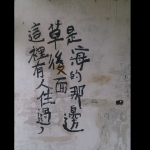 這裡有人住過，
草後面
是海的那邊